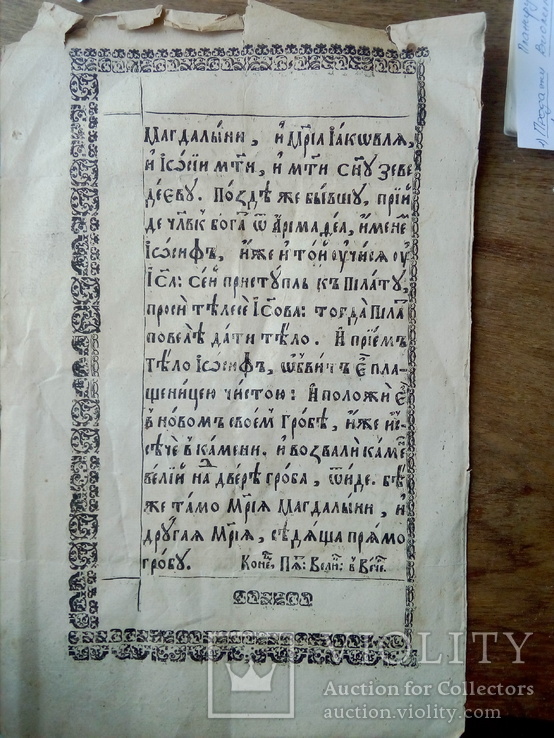 Магдалы́ни, и҆ Мр҃і́а І҆а́кѡвлѧ,
и҆ І҆ѡсі́и мт҃и, и҆ мт҃и сн҃у зеве
де́ѡву. По́здѣ же бы́вшу, прїи́
де чл҃вк бога́т ѿ А҆рїмаѳе́а, и҆́мене
І҆ѡ́сифъ, и҆́же и҆ то́й ᲂу҆чи́сѧ ᲂу҆
І҆с҃а: се́й присту́пль къ Пїла́ту,
проси́ тѣлесѐ І҆с҃ова: тогда̀ Пїла́т
повелѣ̀ да́ти тѣ́ло. И҆ прїе́мъ
тѣ́ло І҆ѡ́сифъ, ѡ҆бви́тъ є҆̀ пла-
щени́цею чи́стою: И҆ положѝ є҆̀
в но́вомъ свое́м гро́бѣ, и҆́же и҆з-
сѣ́че в ка́мени. и҆ возвалѝ ка́мен
ве́лїй на две́рѣ гро́ба, ѿи́де. бѣ́
же та́мо Мр҃і́а Магдалы́ни, и҆
дрꙋга́ѧ Мр҃і́а, сѣдѧ́ща прѧ́мо
гро́бу. Коне́ц, Пѧт: Вели́к: в Ве́че.
Видемский
1) Продажи
VIOLITY
Auction for Collectors
auction.violity.com